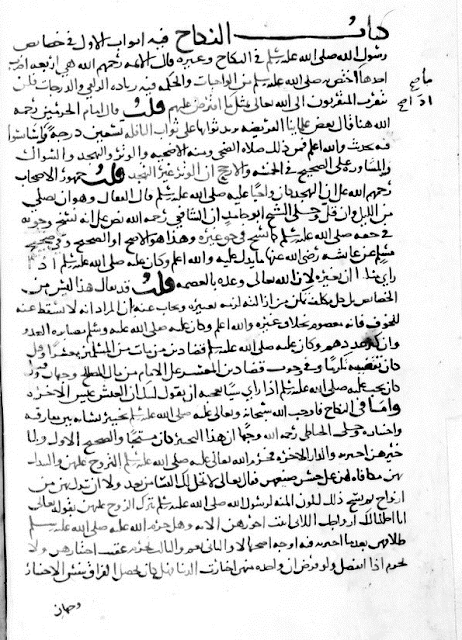 كتاب النكاح فيه ابواب الاول في خصائص
رسول الله صلى الله عليه وسلم في النكاح وغيره قال الائمة رحمهم الله هي اربعة اضرب
احدها ما اختص به صلى الله عليه وسلم من الواجبات والحكمة فيه زيادة الزلفى والدرجات فلن
يتقرب المتقربون الى الله تعالى بمثل ما افترض عليهم قلت قال امام الحرمين رحمه
الله هنا قال بعض علمائنا الفريضة يزيد ثوابها على ثواب النافلة بسبعين درجة واستانسوا
فيه بحديث والله اعلم فمن ذلك صلاة الضحى ومنه الاضحية والوتر والتهجد والسواك
والمشاورة على الصحيح في الخمسة والارجح ان الوتر غير التهجد قلت جمهور الاصحاب
رحمهم الله على ان التهجد كان واجبا عليه صلى الله عليه وسلم قال القفال وهو ان يصلي
من الليل وان قل وحكى الشيخ ابو حامد ان الشافعي رحمه الله نص على انه نسخ وجوبه
في حقه صلى الله عليه وسلم كما نسخ في حق غيره وهذا هو الاصح او الصحيح وفي صحيح
مسلم عن عائشة رضي الله عنها ما يدل عليه والله اعلم وكان عليه صلى الله عليه وسلم اذا
راى منكرا ان يغيره لان الله تعالى وعده بالعصمة قلت قد يقال هذا ليس من
الخصائص بل كل مكلف تمكن من ازالته لزمه تغييره ويجاب عنه ان المراد انه لا يسقط عنه
للخوف فانه معصوم بخلاف غيره والله اعلم وكان عليه صلى الله عليه وسلم مصابرة العدو
وان كثر عددهم وكان عليه صلى الله عليه وسلم قضاء دين من مات من المسلمين معسرا وقيل
كان يقضيه تكرما وفي وجوب قضاء دين المعسر على الامام من مال المصالح وجهان وقيل
كان يجب عليه صلى الله عليه وسلم اذا راى شيا يعجبه ان يقول لبيك ان العيش عيش الاخرة
واما في النكاح فاوجب الله سبحانه وتعالى عليه صلى الله عليه وسلم تخيير نسائه بين مفارقته
واختياره وحكى الحناطي رحمه الله وجها ان هذا التخيير كان مستحبا والصحيح الاول ولما
خيرهن اخترنه والدار الاخرة فحرم الله تعالى عليه صلى الله عليه وسلم التزوج عليهن والتبدل
بهن مكافاة لهن على حسن صنيعهن فقال تعالى لا يحل لك النساء من بعد ولا ان تبدل بهن من
ازواج ثم نسخ ذلك لتكون المنة لرسول الله صلى الله عليه وسلم بترك التزوج عليهن بقوله تعالى
انا احللنا لك ازواجك اللاتي اتيت اجورهن الاية وهل حرم الله عليه صلى الله عليه وسلم
طلاقهن بعد ما اخترنه فيه اوجه اصحها لا والثاني نعم والثالث يحرم عقب اختيارهن ولا
يحرم اذا انفصل ولو فرض ان واحدة منهن اختارت الدنيا هل كان يحصل الفراق بنفس الاختيار
وجهان